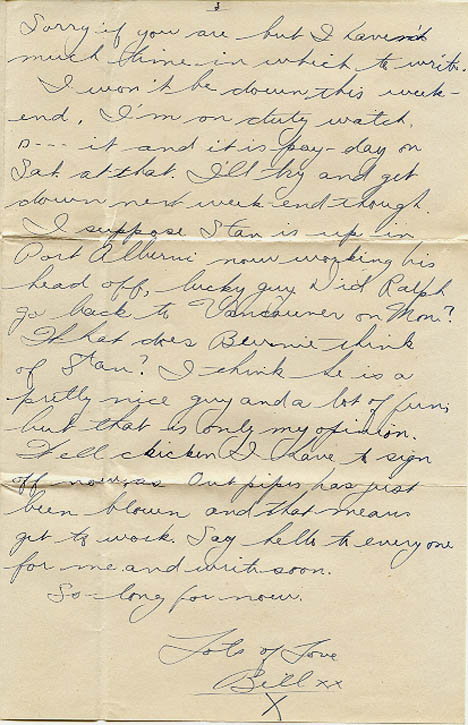 3
Sorry if you are but I haven't
much thime in which to write.
I won't be down this week-
end, I'm on duty watch,
D--- it and it is pay-day on
Sat. at that. I'll try and get
down next week-end though.
I suppose Stan is up in
Port Alberni now working his
head off, lucky guy. Did Ralph
go back to Vancouver on Mon?
What does Bernie think
of Stan? I think he is a
pretty nice guy and a lot of fun,
but that is only my opinion.
Well chicken I have to sign
off now, as Out pipes has just
been blown and that means
get to work. Say hello to everyone
for me and write soon.
So-long for now.
Lots of Love
Bill xx
X